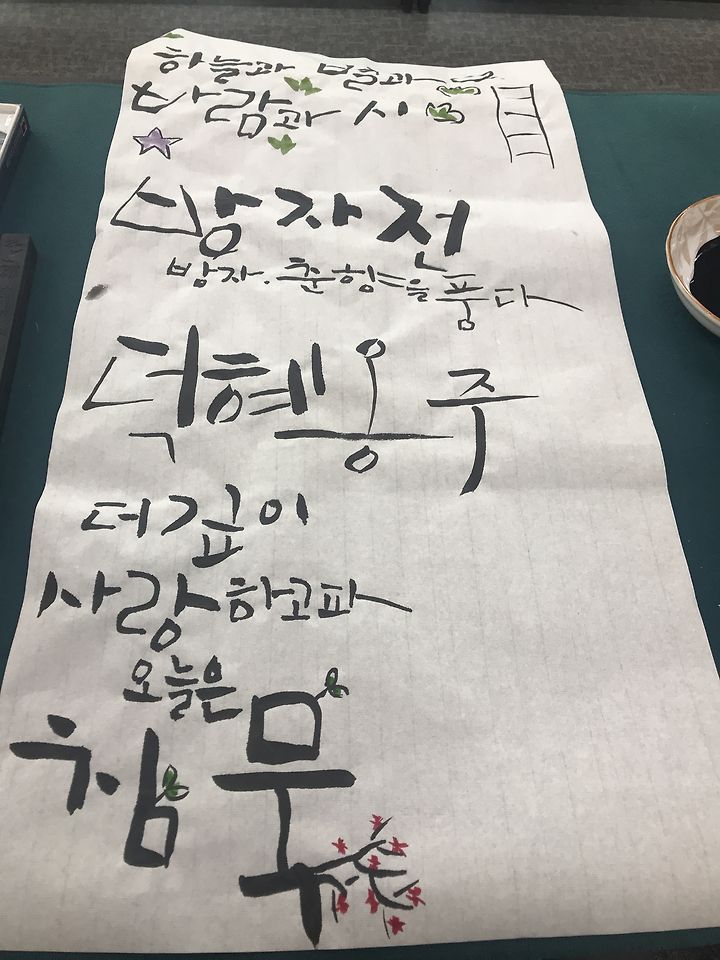 하늘과 별과
바람과 시
방자전
방자.춘향을 품다
덕혜옹주
더 깊이
사랑하고파
오늘은
침묵